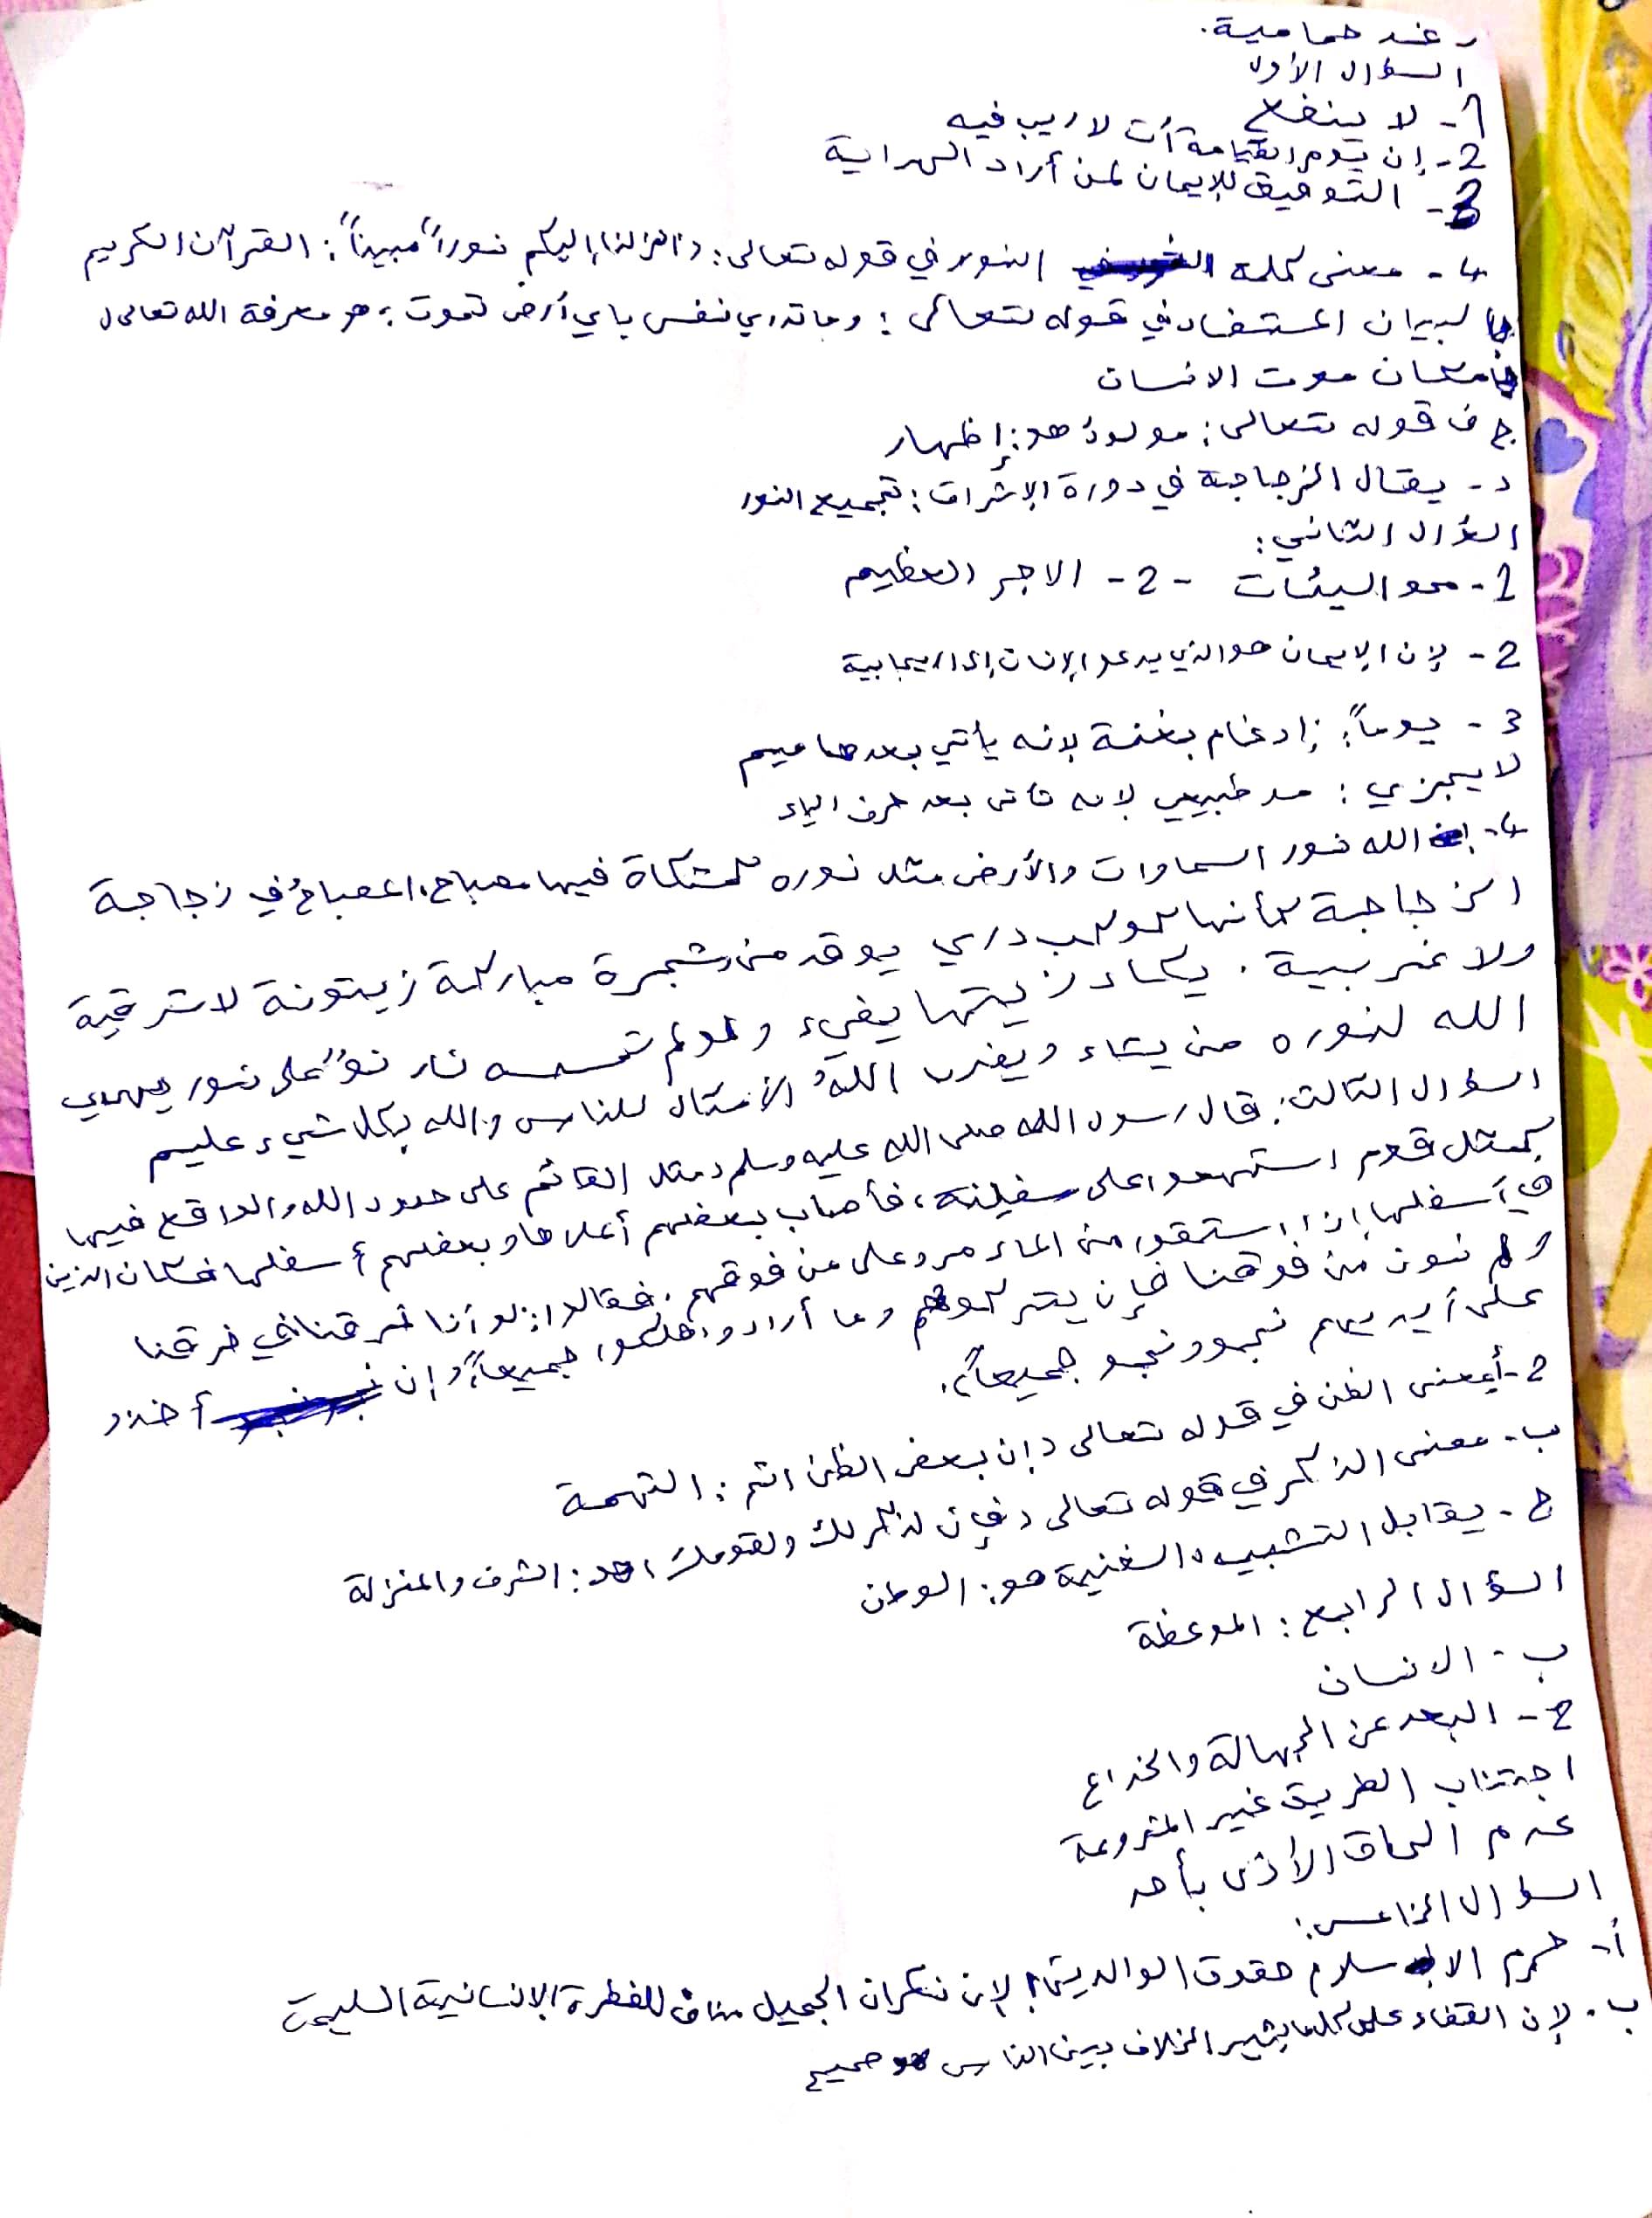 رغد حمامية.
السؤال الأول
1- لا ينفع
2- إن يوم القيامة آت لا ريب فيه
3- التوفيق للإيمان لمن أراد الهداية
4- معنى كلمة النور في قوله تعالى: وأنزلنا إليكم نوراً مبيناً": القرآن الكريم
البيان المستفاد في قوله تعالى: وما تدري نفس بأي أرض تموت: هو معرفة الله تعالى ل
مكان موت الانسان
ج في قوله تعالى: مولودٌ هو: إظهار
د- يقال الزجاجة في دورة الإشراق: تجميع النور
السؤال الثاني:
1- محو السيئات -2- الاجر العظيم
2- لإن الإيمان هو الذي يدعو الإنسان إلى الايجابية
3- يوماً: إدغام بغنة لإنه يأتي بعدها ميم
لا يجزي: مد طبيعي لانه تأتي بعد حرف الياء
4- الله نور السماوات والأرض مثل نوره كمشكاة فيها مصباح، المصباحُ في زجاجة
الزجاجة كأنها كوكب دري يوقد من شجرة مباركة زيتونة لا شرقية
ولا غربية. يكاد زيتها يضيء ولو لم تمسسه نار نورٌ على نور يهدي
الله لنوره من يشاء ويضرب اللهُ الأمثال للناس والله بكل شيء عليم
السؤال الثالث: قال رسول الله صلى الله عليه وسلم: مثل القائم على حدود الله والواقع فيها
كمثل قوم استهموا على سفينة، فأصاب بعضهم أعلاها وبعضهم أسفلها فكان الذين
في أسفلها إذا استقوا من الماء مروا على من فوقهم. فقالوا: لو أنا خرقنا في خرقنا
ولم نوذ من فوقنا فإن يتركوهم وما أرادوا هلكوا جميعاً، وإن أخذو
على أيديهم نجوو نجو جميعاً".
2- أ- معنى الظن في قوله تعالى: إن بعض الظن اثم: التهمة
ب- معنى الذكر في قوله تعالى: فإن لذكر لك ولقومك هو: الشرف والمنزلة
ج- يقابل التشبيه السفينة هو: الوطن
السؤال الرابع: الموعظة
ب- الانسان
2- البعد عن الجهالة والخداع
اجتناب الطريق غير المشروعة
عدم الحاق الأذى بأحد
السؤال الخامس:
أ- حرم الاسلام عقوق الوالدين: لإن نكران الجميل مناف للفطرة الإنسانية السليمة
ب- لإن القضاء على كل ما يثير الخلاف بين الناس هو صحيح